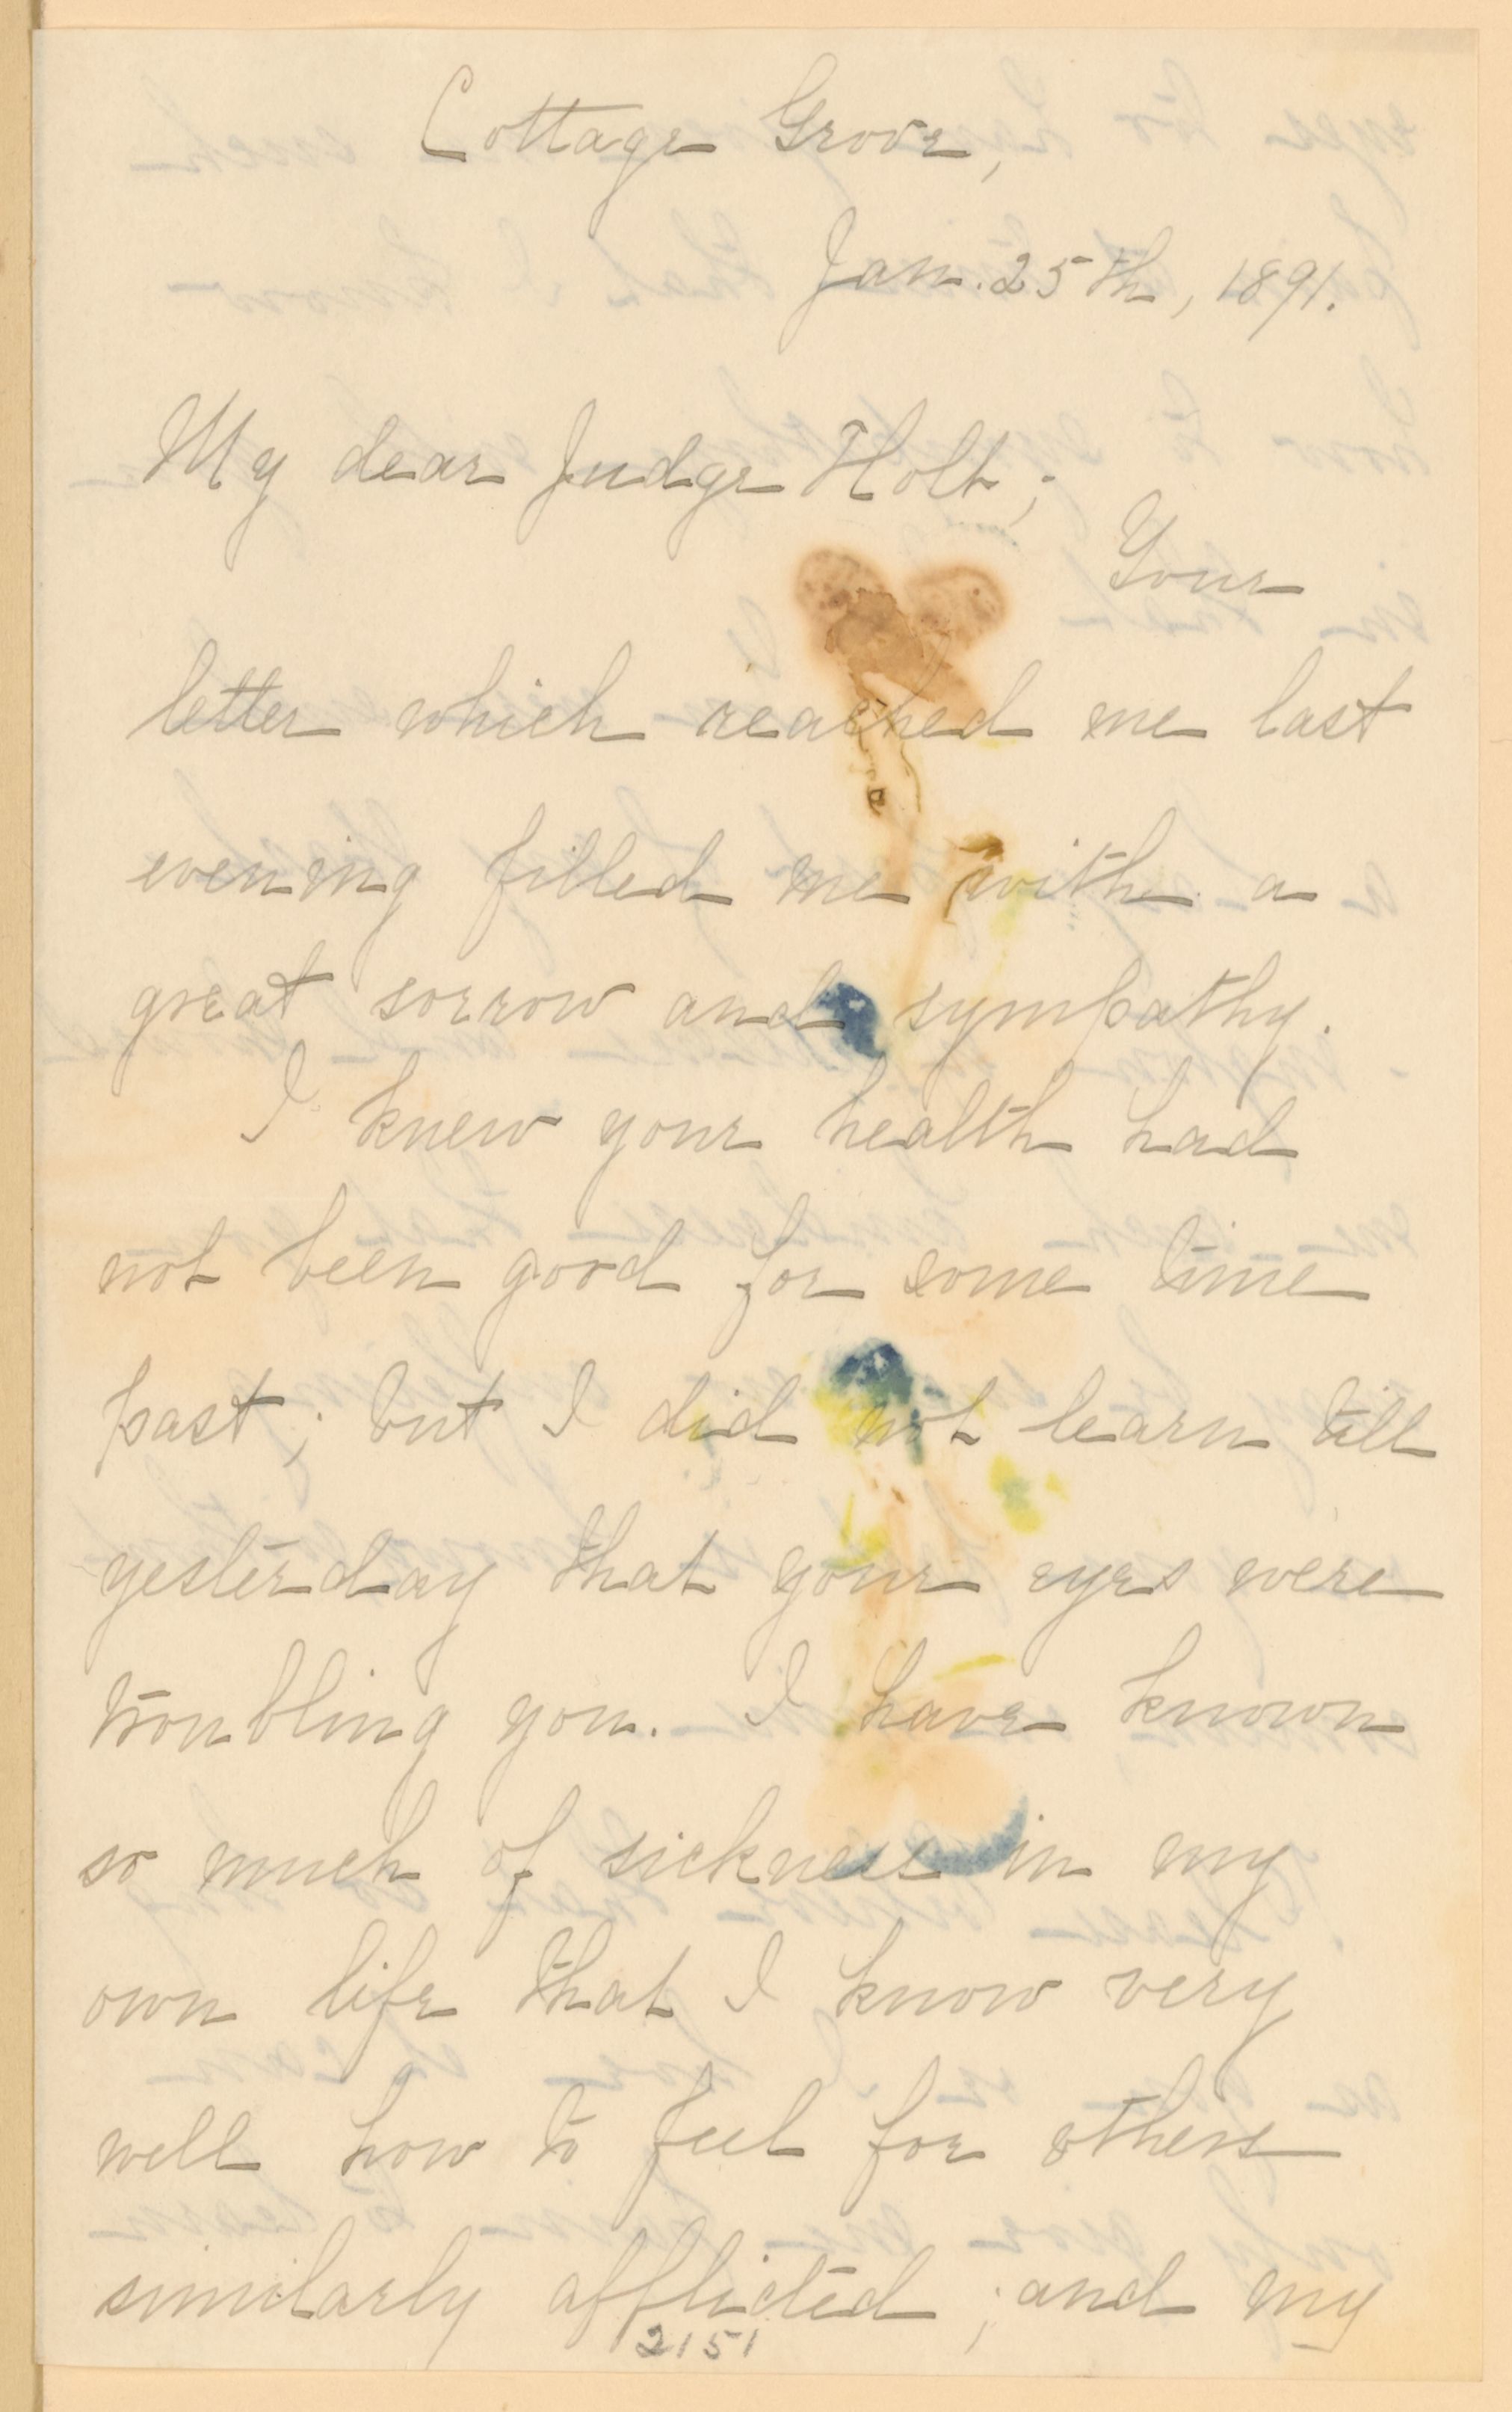 Cottage Grove,
Jan. 25th, 1891.
My dear Judge Holt;
Your
letter which reached me last
evening filled me with a
great sorrow and sympathy.
I knew your health had
not been good for some time
past; but I did not learn till
yesterday that your eyes were
troubling you. I have known
so much of sickness in my
own life that I know very
well how to feel for others
similarly afflicted; and my
2151